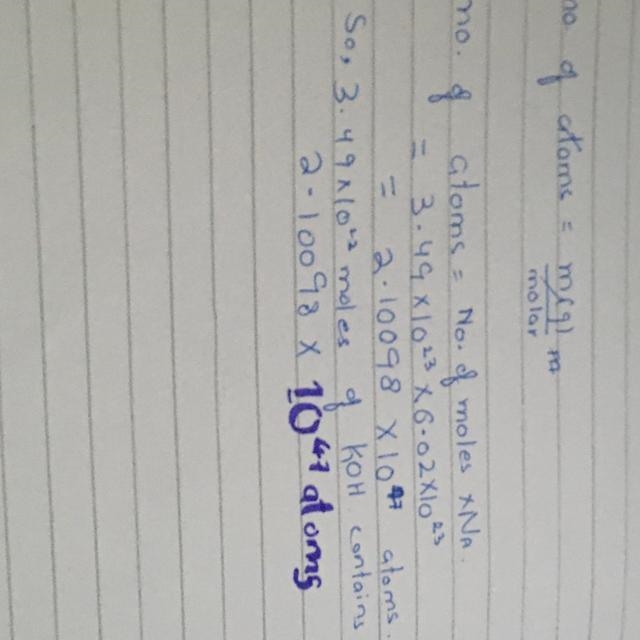 no. of atoms = m(g)
molar m
no. of atoms = No. of moles x NA.
= 3.49 x 10²³ x 6.02x10²³
= 2.10098 x 10⁴⁷ atoms.
So, 3.49x10⁻²³ moles of KOH contains
2.10098 x 10⁴⁷ atoms